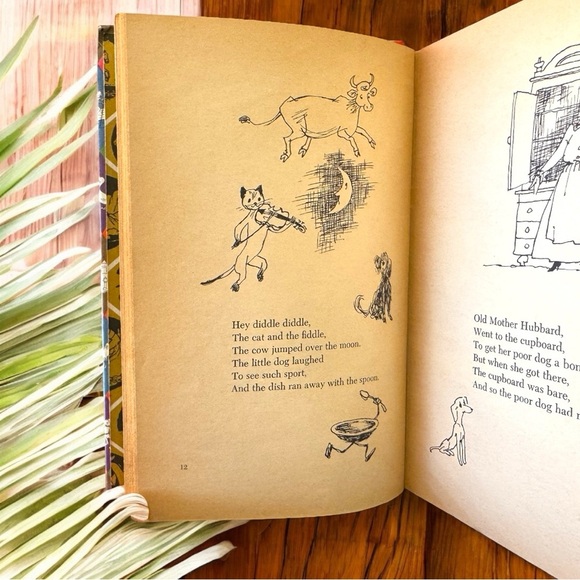 Hey diddle diddle,
The cat and the fiddle,
The cow jumped over the moon.
The little dog laughed
To see such sport,
And the dish ran away with the spoon.
12
Old Mother Hubbard,
Went to the cupboard,
To get her poor dog a
But when she got there,
The cupboard was bare,
And so the poor dog had